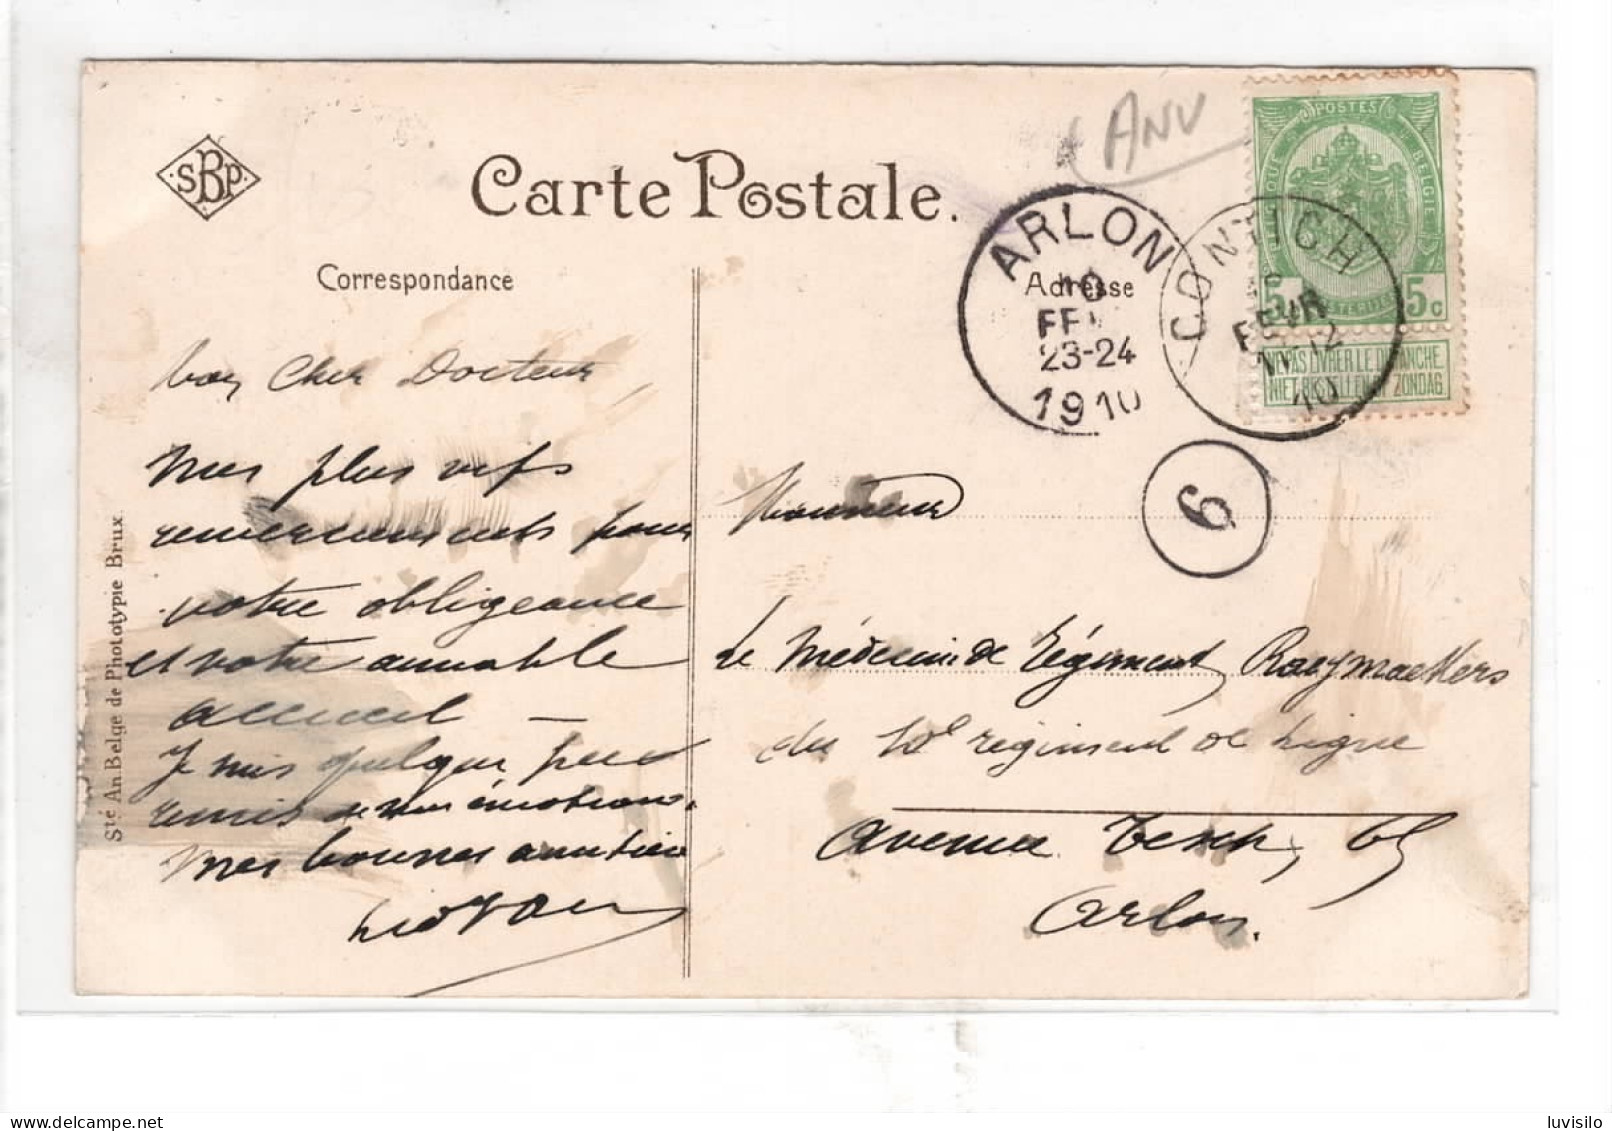 SBP
Carte Postale.
Anv
POSTES
BELGIQUE BELGIE
5 5c
NE PAS LIVRER LE DIMANCHE
NIET BESTELLEN OP ZONDAG
ARLON
10
FEV
23-24
1910
CONTICH
FEVR
10
Correspondance
Adresse
6
Mon Cher Docteur
Mes plus vifs
remerciements pour
votre obligeance
et votre aimable
accueil —
Je suis quelque peu
remis de mes émotions.
Mes bonnes amitiés
Monsieur
Le Médecin de régiment Raeymaekers
du 10e régiment de Ligne
Avenue Tesch, 65
Arlon.
Sté An. Belge de Phototypie Brux.
delcampe.net
luvisilo